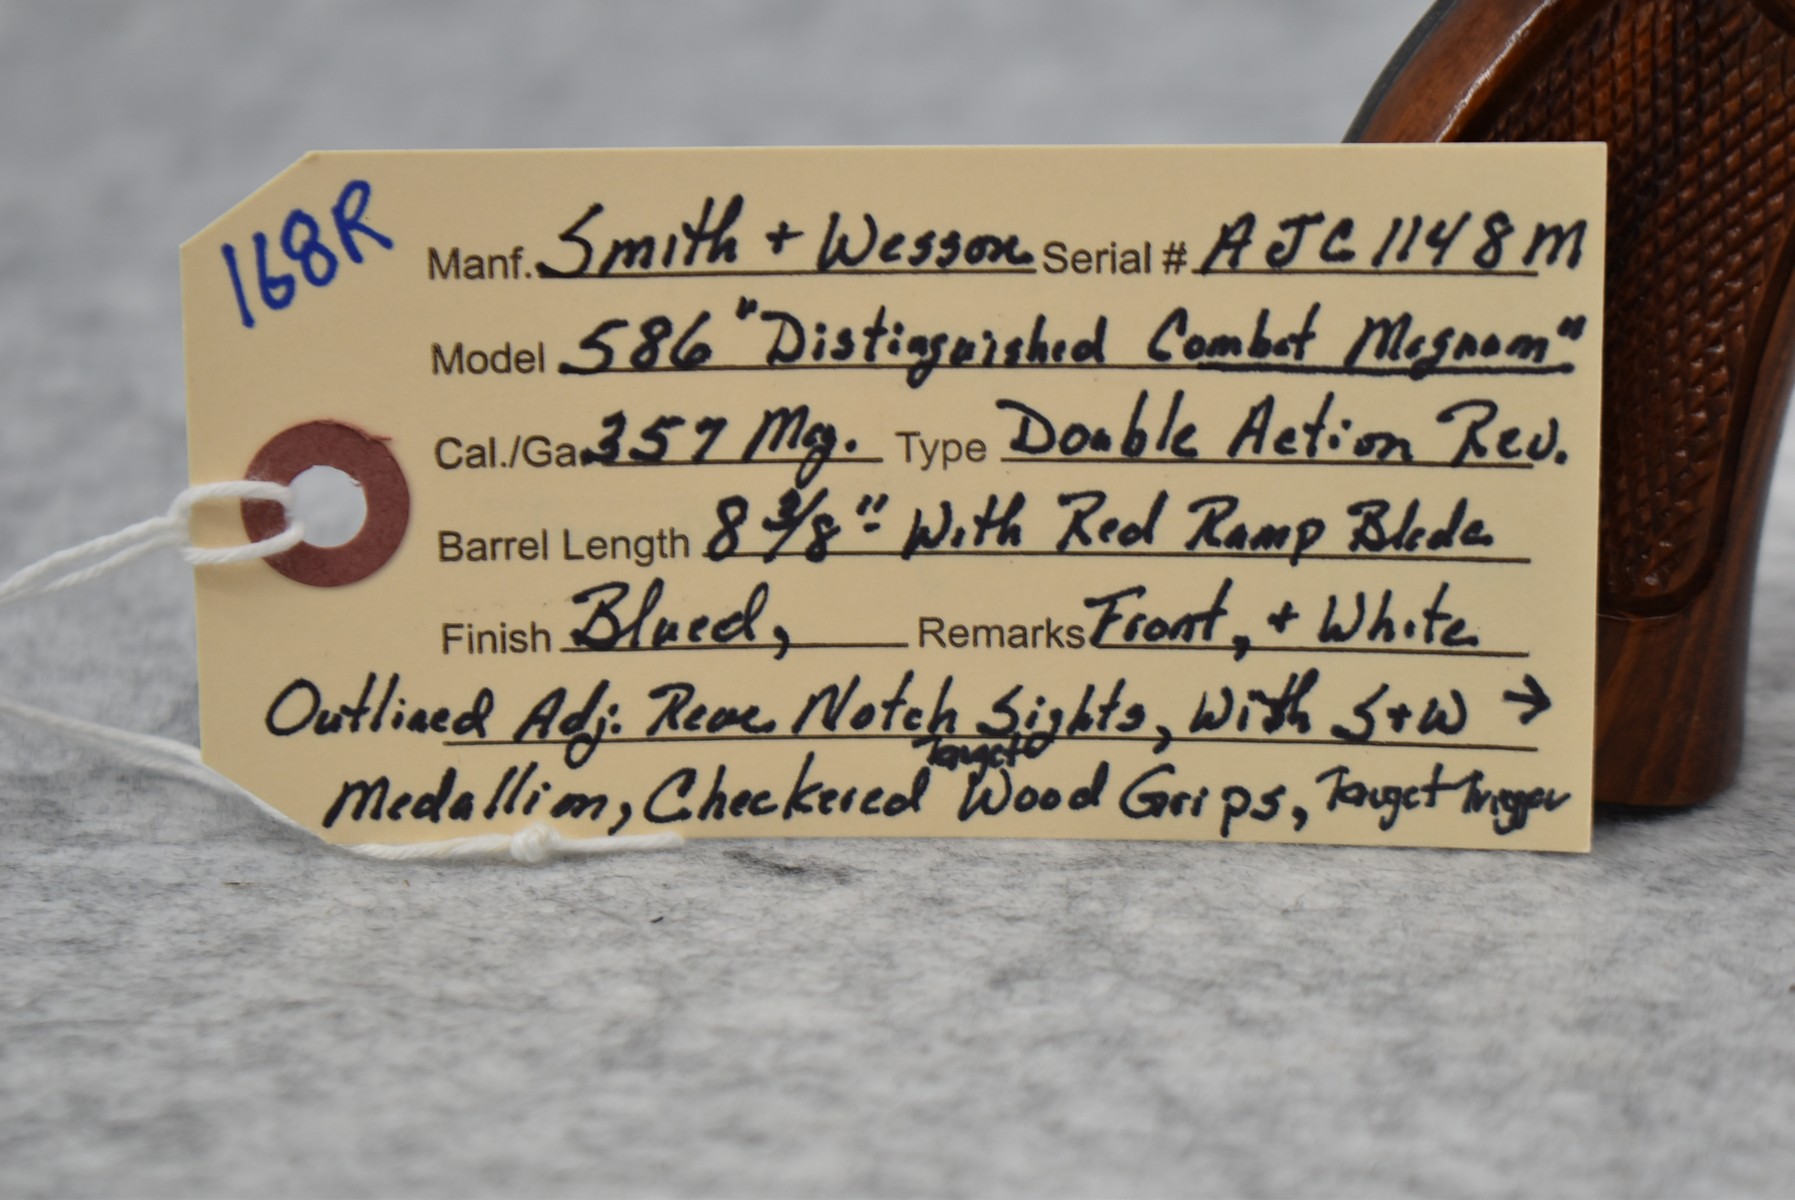 168R
Manf. Smith + Wesson Serial # AJC1148M
Model 586 "Distinguished Combat Magnum"
Cal./Ga. 357 Mag. Type Double Action Rev.
Barrel Length 8 3/8" With Red Ramp Blade
Finish Blued, Remarks Front, + White
Outlined Adj. Rear Notch Sights, With S+W →
Target
Medallion, Checkered Wood Grips, Target Trigger